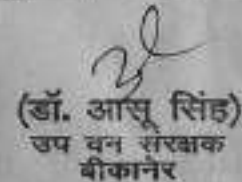 (डॉ. आसू सिंह)
उप वन संरक्षक
बीकानेर